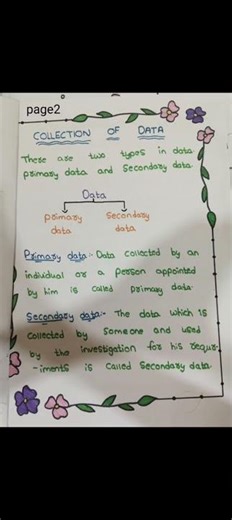 page2
COLLECTION OF DATA
There are two types in data
primary data and Secondary data
Data
primary Secondary
data data
Primary data:- Data collected by an
individual or a person appointed
by him is called primary data.
Secondary data:- The data which is
collected by someone and used
by the investigation for his requir-
-iments is called Secondary data.